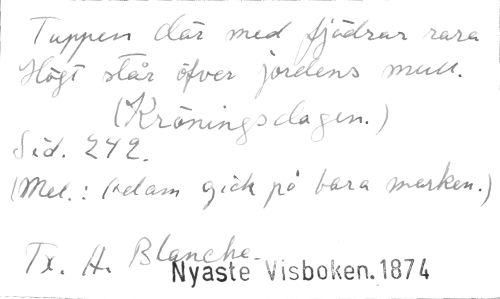 Tuppen där med fjädrar rara
Högt står öfver jordens mull.
(Kröningsdagen.)
Sid. 242.
(Mel.: Adam gick på bara marken.)
Tx. A. Blanche.
Nyaste Visboken. 1874